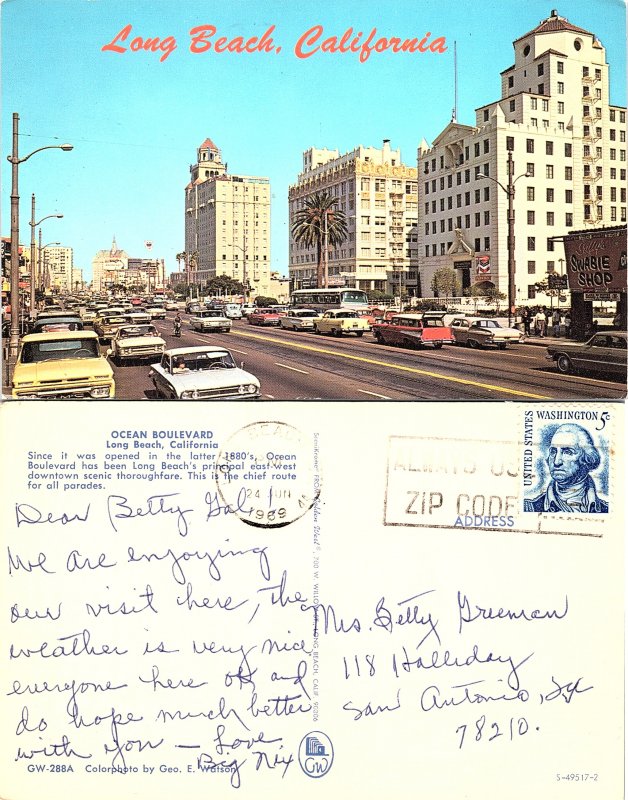 Long Beach, California
SWABIE
SHOP
OCEAN BOULEVARD
Long Beach, California
Since it was opened in the latter 1880's, Ocean
Boulevard has been Long Beach's principal east-west
downtown scenic thoroughfare. This is the chief route
for all parades.
Dear Betty Gal,
We are enjoying
our visit here, the
weather is very nice
everyone here ok and
do hope much better
with you — Love
Big Nix
GW-288A Colorphoto by Geo. E. Watson
LONG BEACH, CALIF.
GW
24 JUN
1969
ALWAYS USE
ZIP CODE
UNITED STATES
WASHINGTON 5c
ADDRESS
Mrs. Betty Greeman
118 Halliday
San Antonio, Tx
78210.
S-49517-2